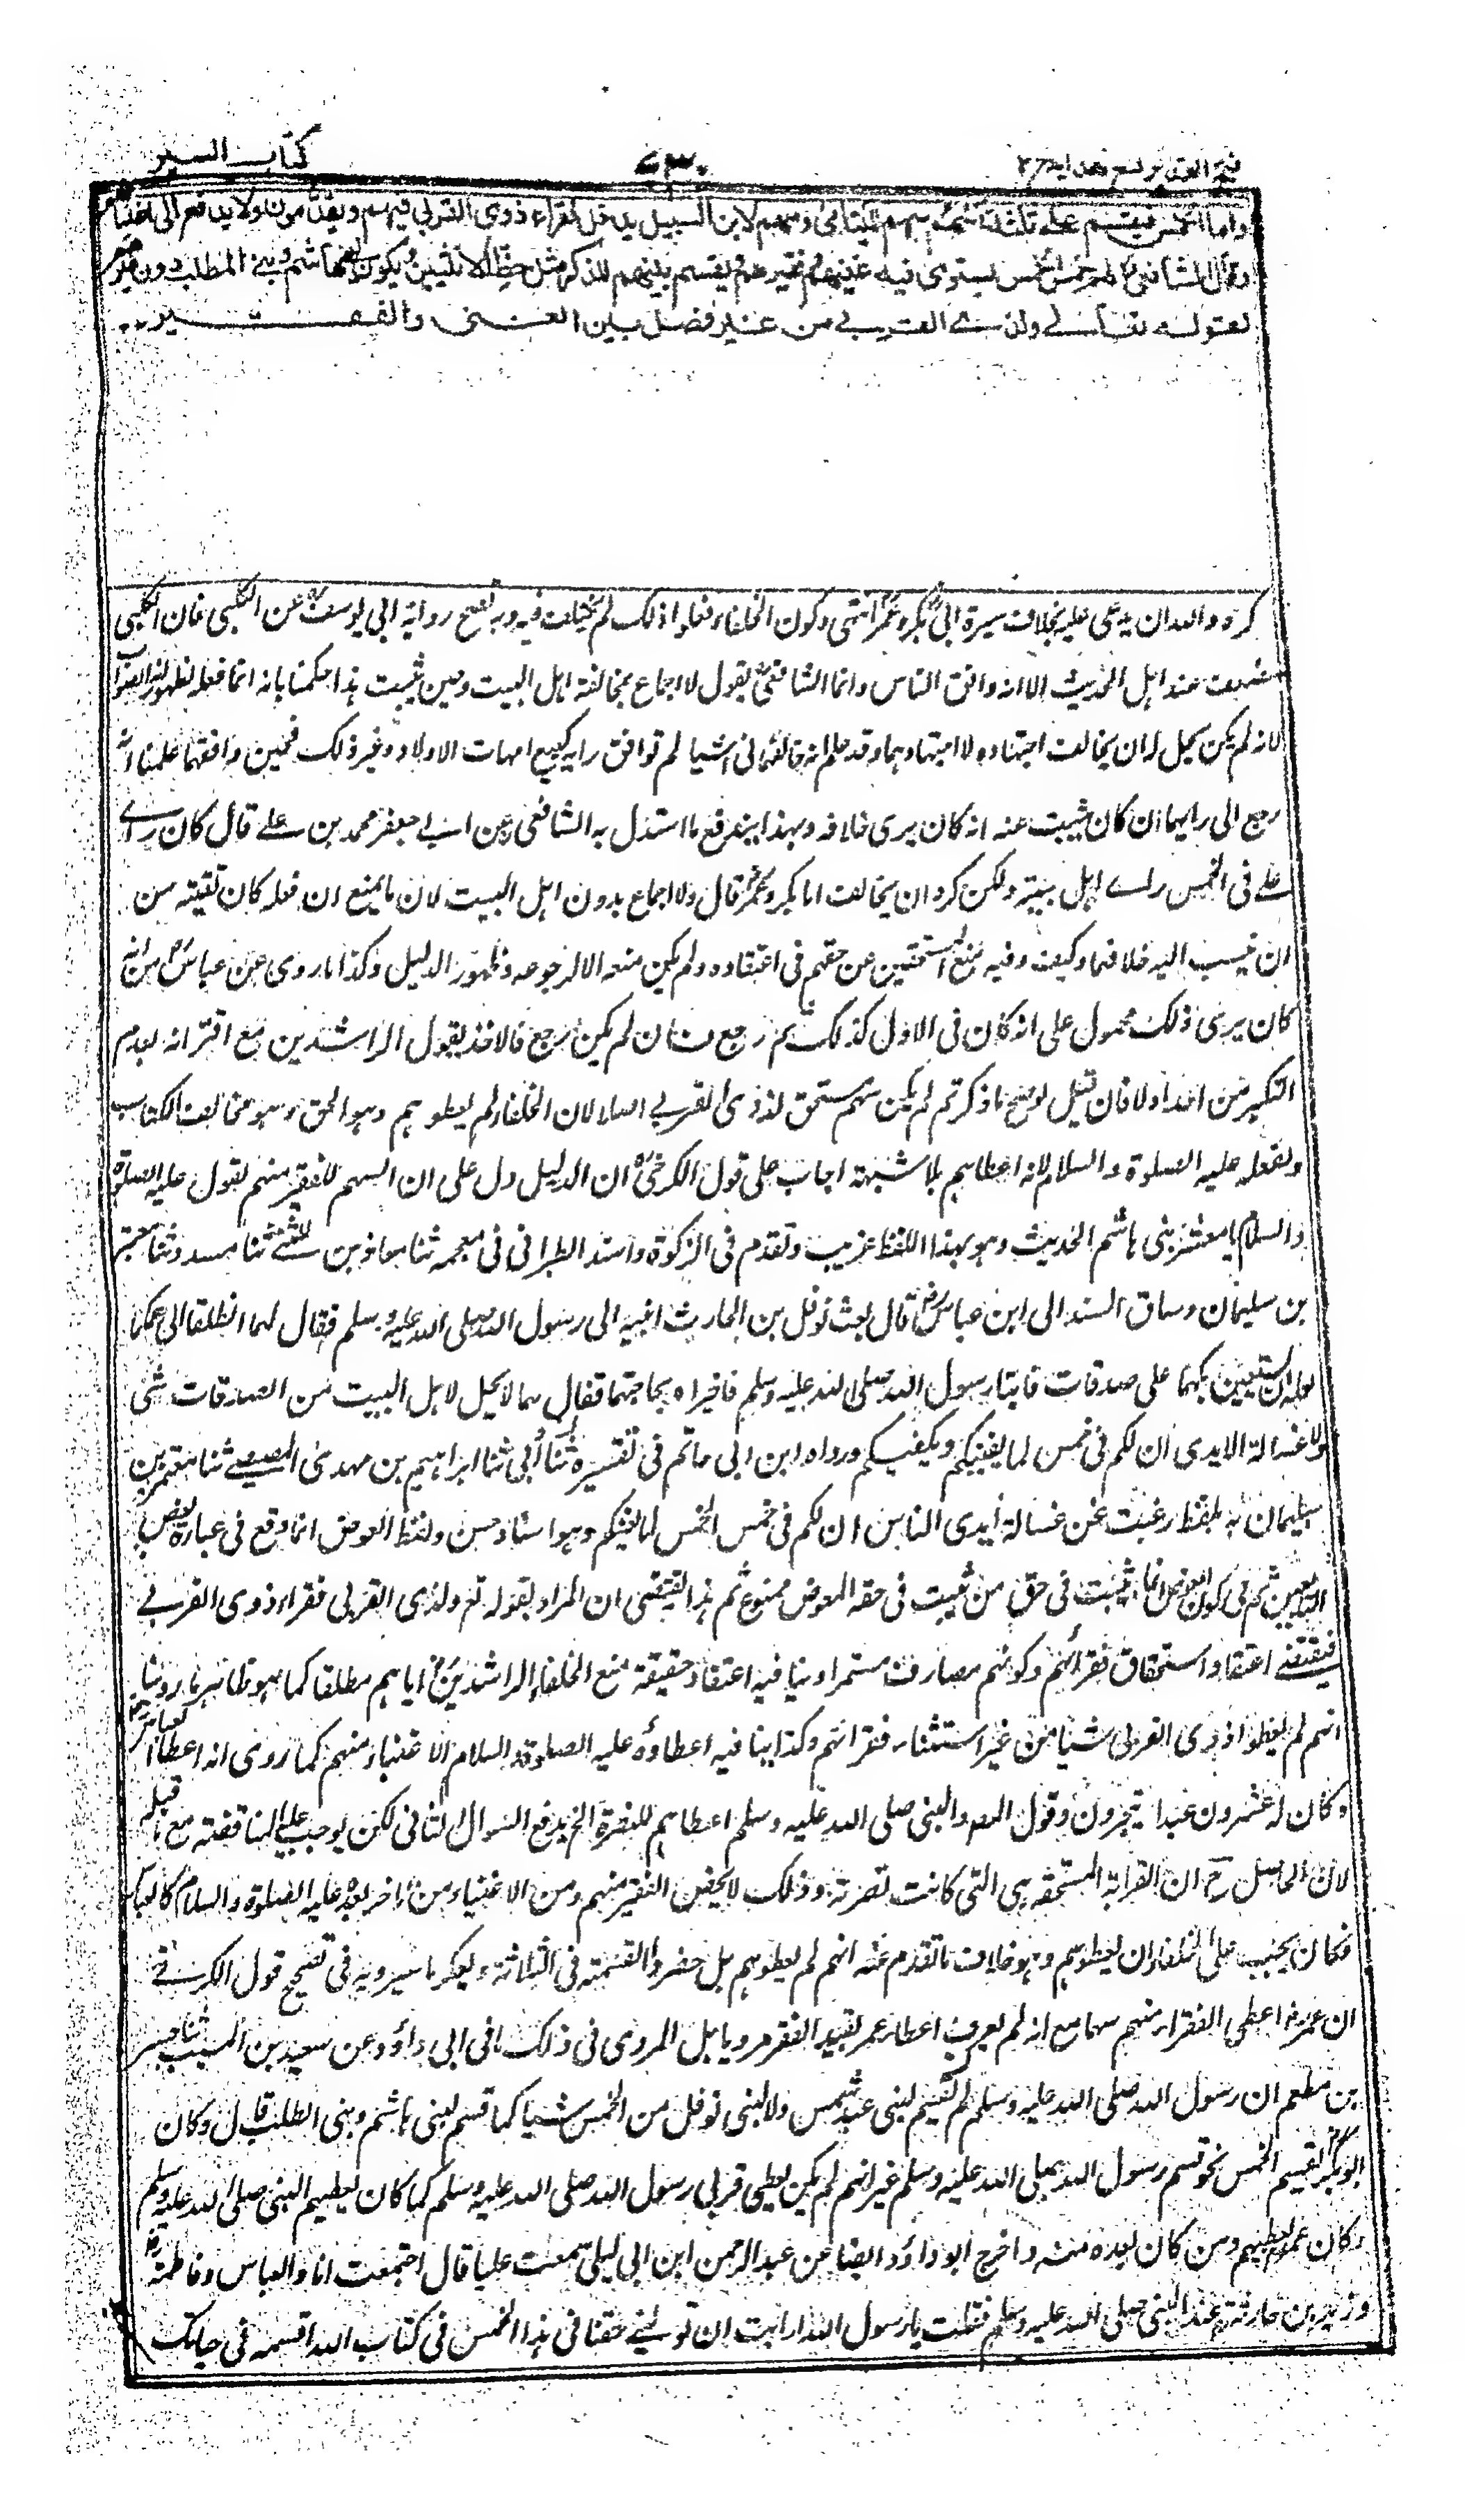 فتح القدير مع هداية ج ٢
٧٣٠
كتاب السير
واما الخمس فيقسم على ثلثة اسهم سهم لليتامى وسهم للمساكين وسهم لابن السبيل يدخل فقراء ذوي القربى فيهم ويقدمون ولا يدفع الى اغنيائهم
وقال الشافعي لهم خمس الخمس يستوى فيه غنيهم وفقيرهم ويقسم بينهم للذكر مثل حظ الانثيين ويكون لبني هاشم وبني المطلب دون غيرهم
لقوله تعالى ولذي القربى من غير فصل بين الغني والفقير
كره والله ان يدعى عليه بخلاف سيرة ابى بكر وعمر انتهى وكون الخلفاء فعلوا ذلك لم يختلف فيه وبه تصح رواية ابى يوسف عن الكلبى فان الكلبى
مضعف عند اهل الحديث الا انه وافق الناس وانما الشافعى يقول لا اجماع بمخالفة اهل البيت وحين ثبت هذا حكمنا بانه انما فعله لظهور انه الصواب
لانه لم يكن يحل له ان يخالف اجتهاده لاجتهادهما وقد علم انه خالفهما فى اشيا لم توافق رايه كبيع امهات الاولاد وغير ذلك فحين وافقهما علمنا انه
رجع الى رايهما ان كان ثبت عنه انه كان يرى خلافه وبهذا يندفع ما استدل به الشافعى عن ابى جعفر محمد بن على قال كان راى
على فى الخمس راى اهل بيته ولكن كره ان يخالف ابا بكر وعمر قال ولا اجماع بدون اهل البيت لان ما يمنع ان فعله كان تقية من
ان ينسب اليه خلافهما وكيف وفيه منع المستحقين عن حقهم فى اعتقاده ولم يكن منعه الا لرجوعه وظهور الدليل وكذا ما روى عن ابن عباس من انه
كان يرى ذلك محمول على انه كان فى الاول كذلك ثم رجع فان لم يكن رجع فالاخذ بقول الراشدين مع اقترانه بعدم
النكير من احد اولا فان قيل لو صح ما ذكرتم لم يكن سهم مستحق لذوى القربى اصلا لان الخلفاء لم يعطوهم وهو الحق وهو مخالف للكتاب
ولفعله عليه الصلوة والسلام لانه اعطاهم بلا شبهة اجاب على قول الكرخى ان الدليل دل على ان السهم للفقير منهم لقوله عليه الصلوة
والسلام يا معشر بنى هاشم الحديث وهو بهذا اللفظ غريب وتقدم فى الزكوة واسند الطبرانى فى معجمه ثنا معاذ بن المثنى ثنا مسدد ثنا معتمر
بن سليمان وساق السند الى ابن عباس قال بعث نوفل بن الحارث ابنيه الى رسول الله صلى الله عليه وسلم فقال لهما انطلقا الى عمكما
لعله ان يستعين بكما على صدقات فاتيا رسول الله صلى الله عليه وسلم فاخبراه بحاجتهما فقال لهما لا يحل لاهل البيت من الصدقات شى
ولا غسالة الايدى ان لكم فى خمس لما يغنيكم ويكفيكم ورواه ابن ابى حاتم فى تفسيره ثنا ابى ثنا ابراهيم بن مهدى المصيصى ثنا معتمر بن
سليمان به بلفظ رغبت عن غسالة ايدى الناس ان لكم فى خمس الخمس لما يغنيكم وهو اسناد حسن ولفظ العوض انما وقع فى عبارة بعض
التابعين ثم فى كون العوض انما يثبت فى حق من ثبت فى حقه المعوض ممنوع ثم هذا يقتضى ان المراد بقوله تع ولذى القربى فقراء ذوى القربى
فيقتضى اعتقاد استحقاق فقرائهم وكونهم مصارف مستمرا وينافيه اعتقاد حقيقة منع الخلفاء الراشدين اياهم مطلقا كما هو ظاهر ما روينا
انهم لم يعطوا ذوى القربى شيئا من غير استثناء فقرائهم وكذا ينافيه اعطاؤه عليه الصلوة والسلام الاغنياء منهم كما روى انه اعطا العباس
وكان له عشرون عبدا يتجرون وقول المص والنبى صلى الله عليه وسلم اعطاهم للنصرة الخ يدفع السوال الثانى لكن يوجب عليه المناقضة مع ما قبله
لان الحاصل ح ان القرابة المستحقه هى التى كانت نصرته وذلك لا يخص الفقير منهم ومن الاغنياء من تاخر بعده عليه الصلوة والسلام كالعباس
فكان يجب على الخلفاء ان يعطوهم وهو خلاف ما تقدم عنه انهم لم يعطوهم بل حصروا القسمة فى الثلاثة ويعكر ما سيرويه فى تصحيح قول الكرخى
ان عمر اعطى الفقراء منهم سهما مع انه لم يعرف اعطاء عمر بقيد الفقر مرويا بل المروى فى ذلك ما فى ابى داؤد عن سعيد بن المسيب ثنا جبير
بن مطعم ان رسول الله صلى الله عليه وسلم لم يقسم لبنى عبد شمس ولا لبنى نوفل من الخمس شيا كما قسم لبنى هاشم وبنى المطلب قال وكان
ابو بكر يقسم الخمس نحو قسم رسول الله صلى الله عليه وسلم غير انهم لم يكن يعطى قربى رسول الله صلى الله عليه وسلم كما كان يعطيهم النبى صلى الله عليه وسلم
وكان عمر يعطيهم ومن كان بعده منه واخرج ابو داؤد ايضا عن عبد الرحمن ابن ابى ليلى سمعت عليا قال اجتمعت انا والعباس وفاطمة
وزيد بن حارثة عند النبى صلى الله عليه وسلم فقلت يا رسول الله ارايت ان تولينى حقنا فى هذا الخمس فى كتاب الله اقسمه فى حياتك